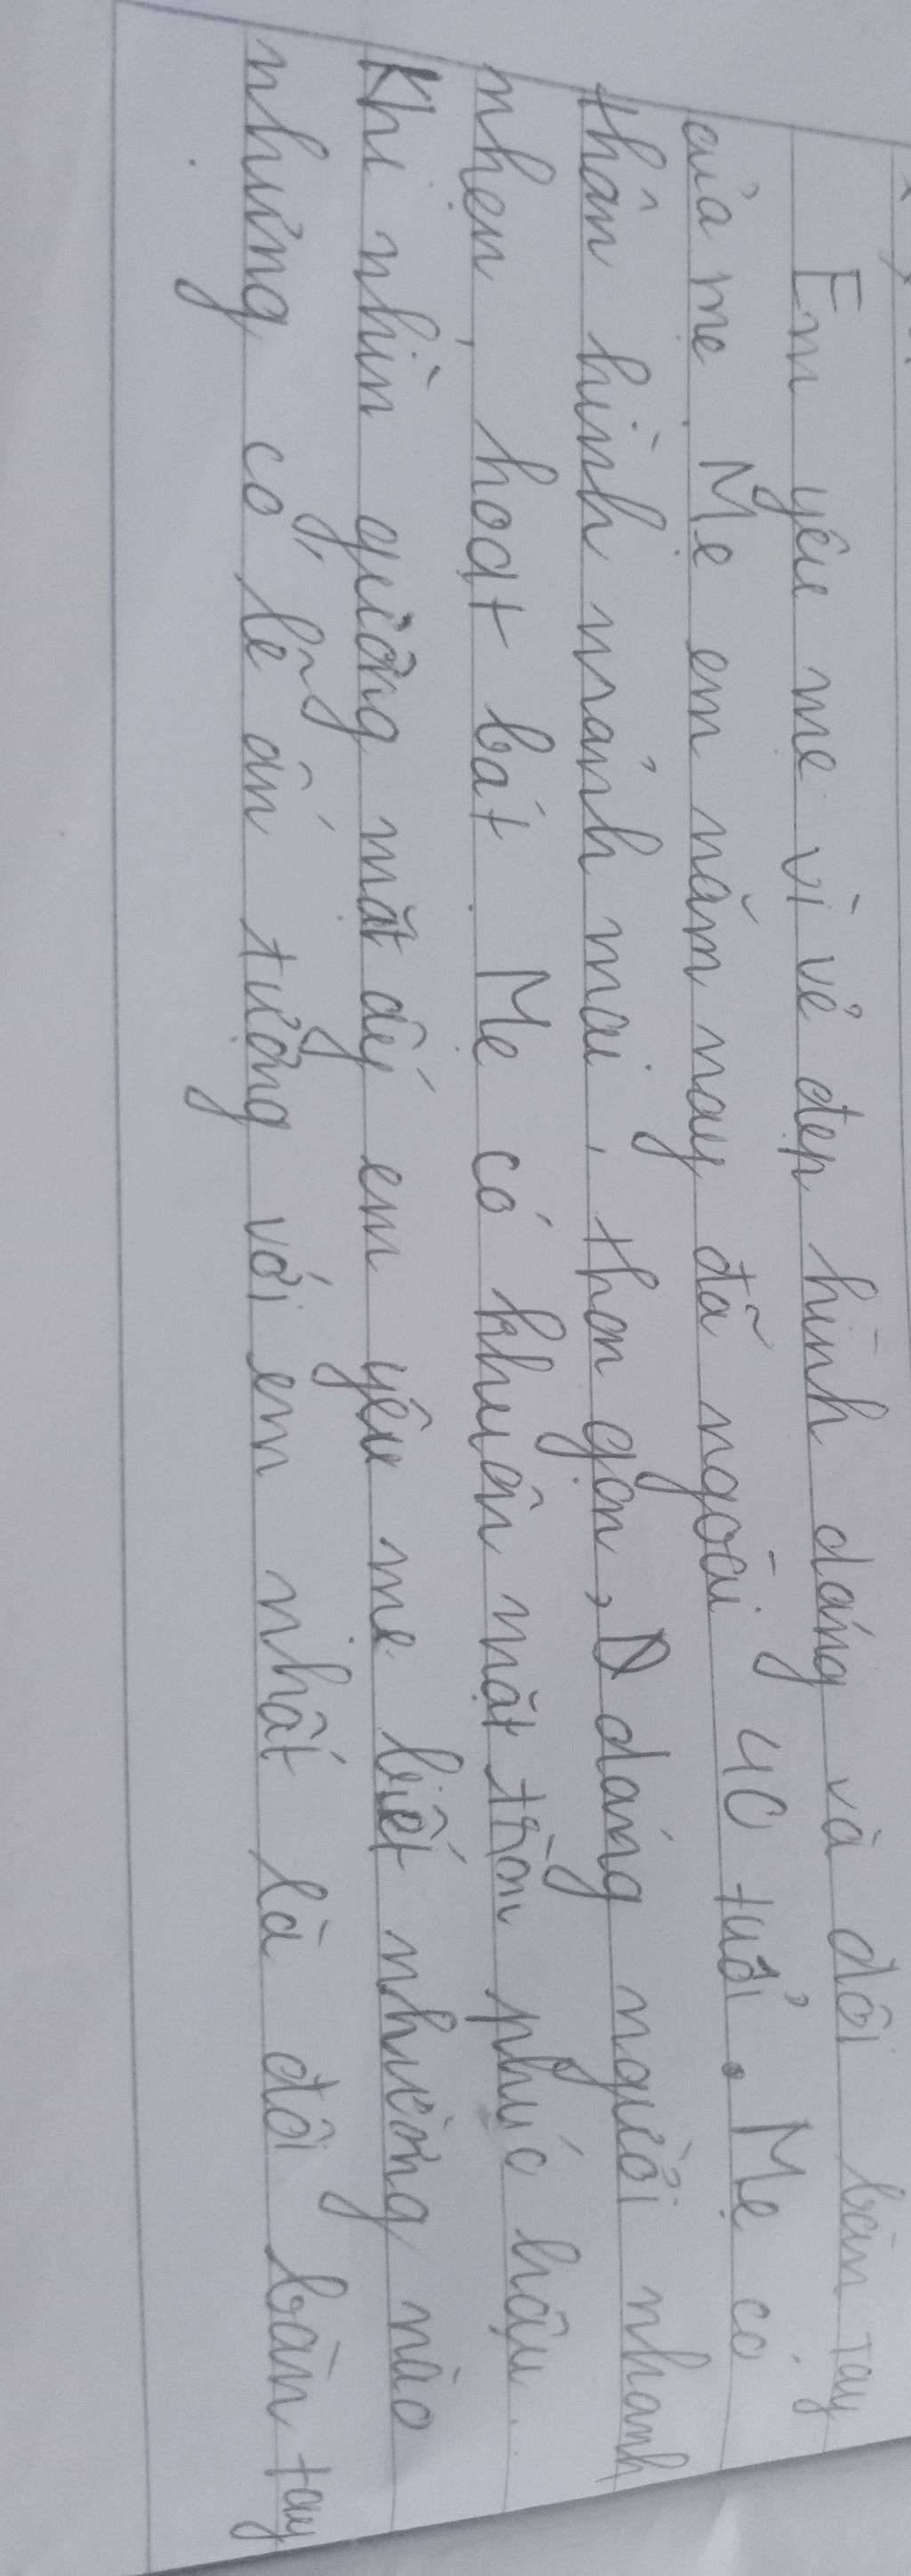 Em yêu mẹ vì vẻ đẹp hình dáng và đôi bàn tay
của mẹ. Mẹ em năm nay đã ngoài 40 tuổi. Mẹ có
thân hình mảnh mai, thon gọn, dáng người nhanh
nhẹn, hoạt bát. Mẹ có khuôn mặt tròn phúc hậu.
Khi nhìn gương mặt đấy em yêu mẹ biết nhường nào
nhưng có lẽ ấn tượng với em nhất là đôi bàn tay